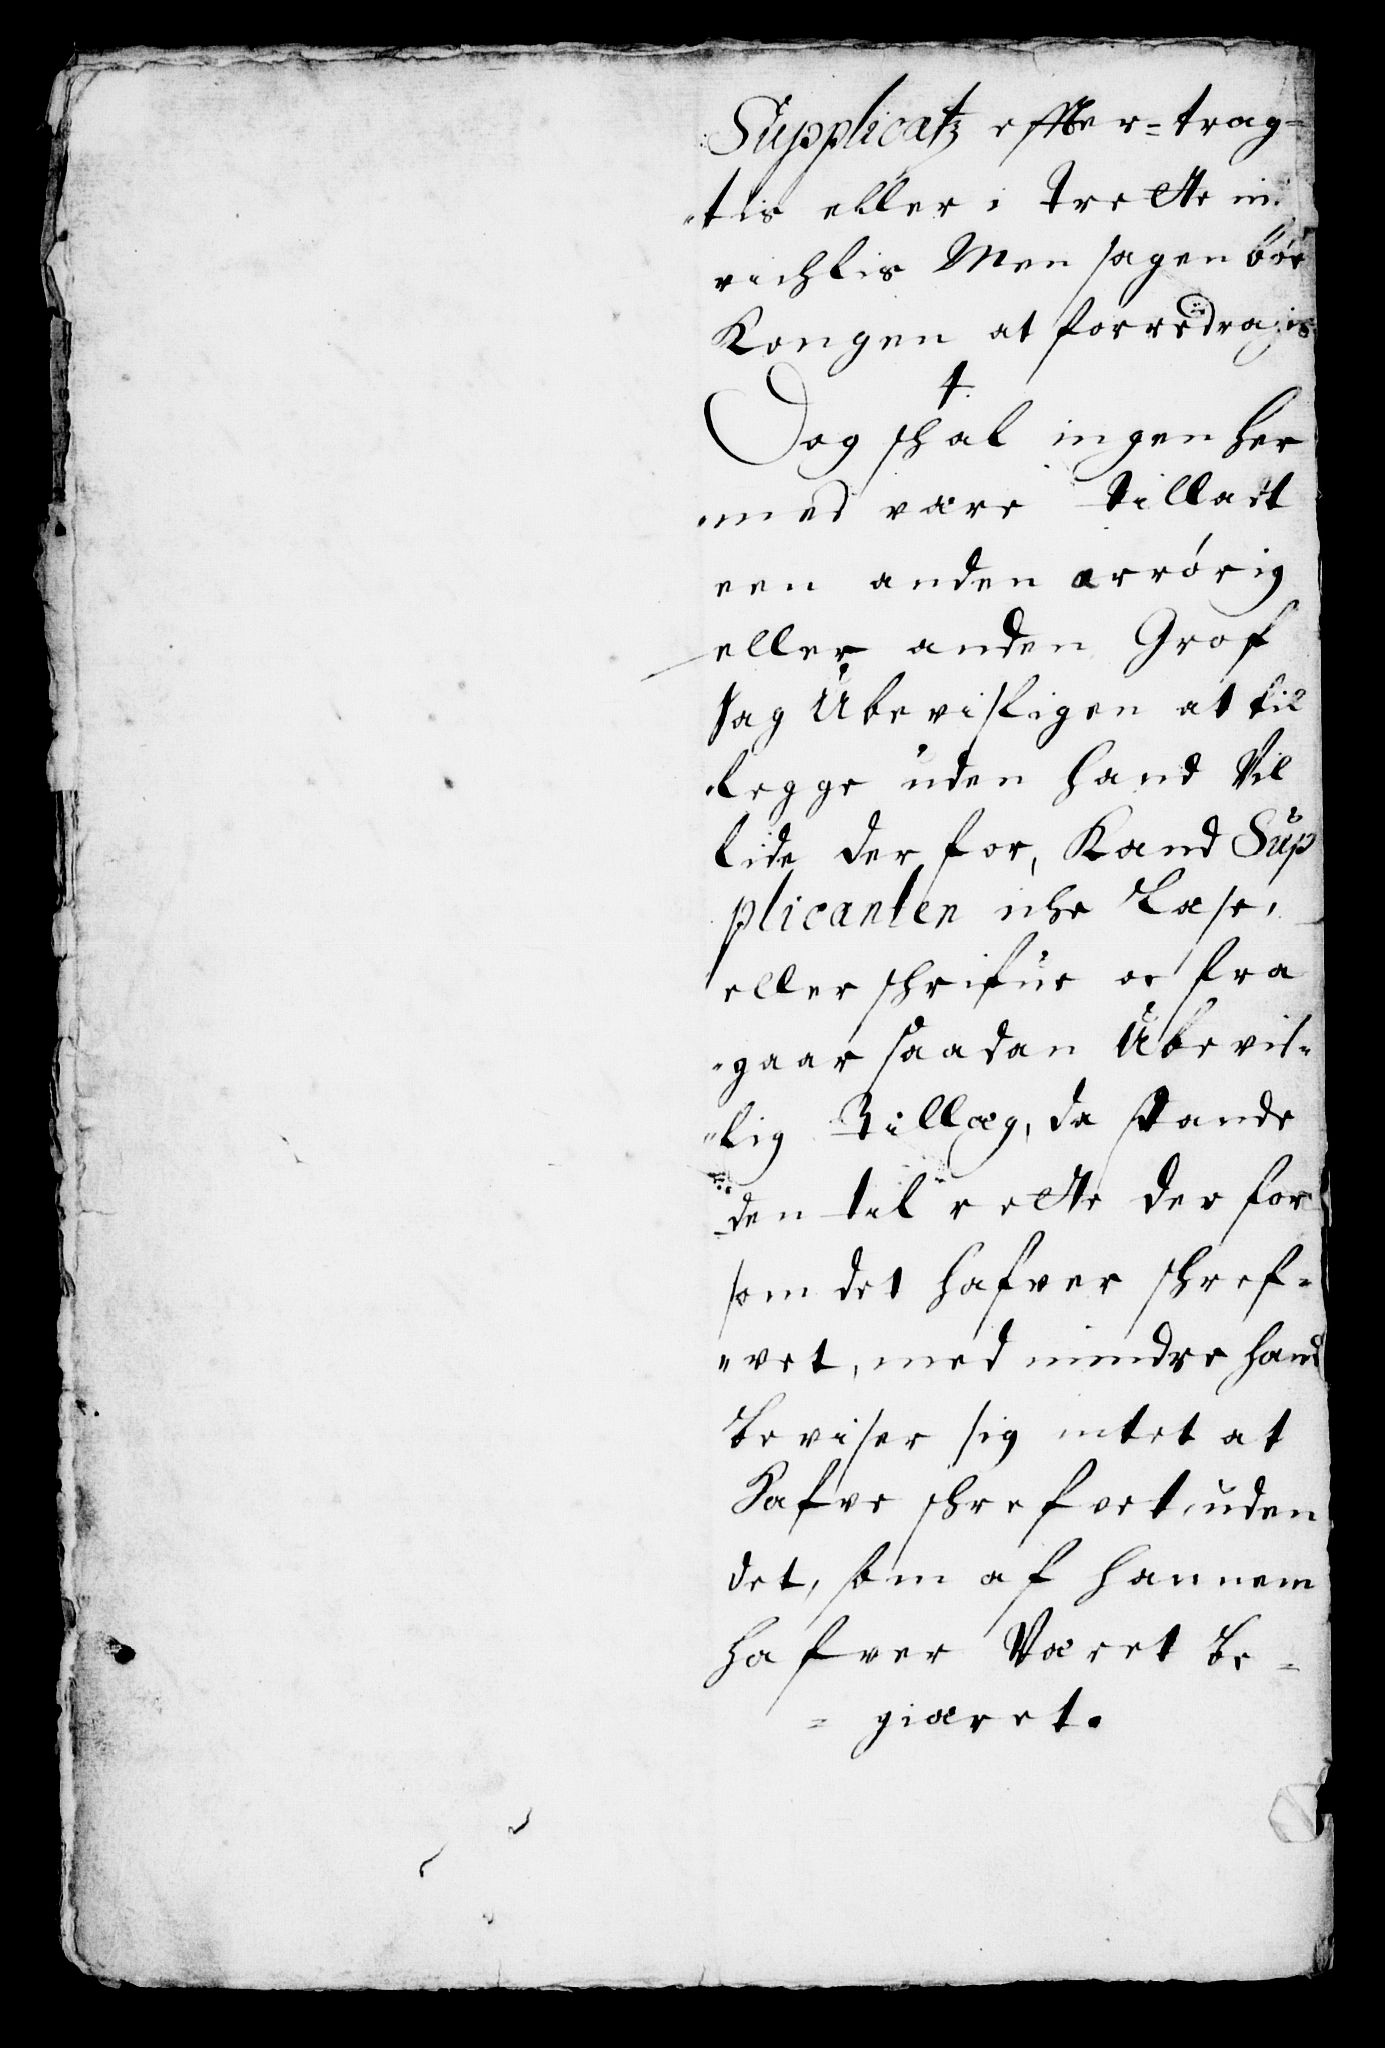 Supplicatz effter=trag=
"tis eller i Trette in
vichlis Men sagen bør
Kongen at forredragis
4.
Dog schal ingen her
"med være tilladt
een anden ærrørig
eller anden Grof
sag Ubevisligen at til
"legge uden hand Vil
lide der for, Kand Sup
plicanten iche Læse,
eller schrifue oc fra
"gaar saadan Ubevis=
"lig Tillæg, da stande
den til rette der for
som det hafver schref=
"vet, med mindre hand
beviser sig intet at
Hafve schrefvet, uden
det, som af hannem
hafver Været be=
=giæret.